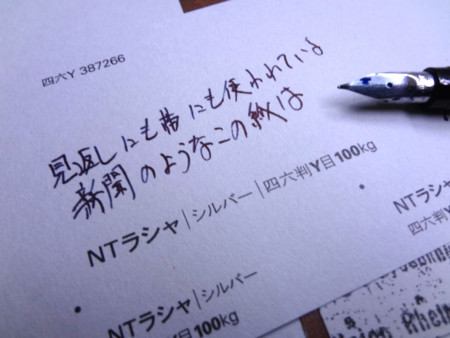 四六Y 387266
見返しにも帯にも使われている
新聞のようなこの紙は
NTラシャ|シルバー|四六判Y目100kg
NTラシ
四六判Y
NTラシャ|シルバー
Y目100kg